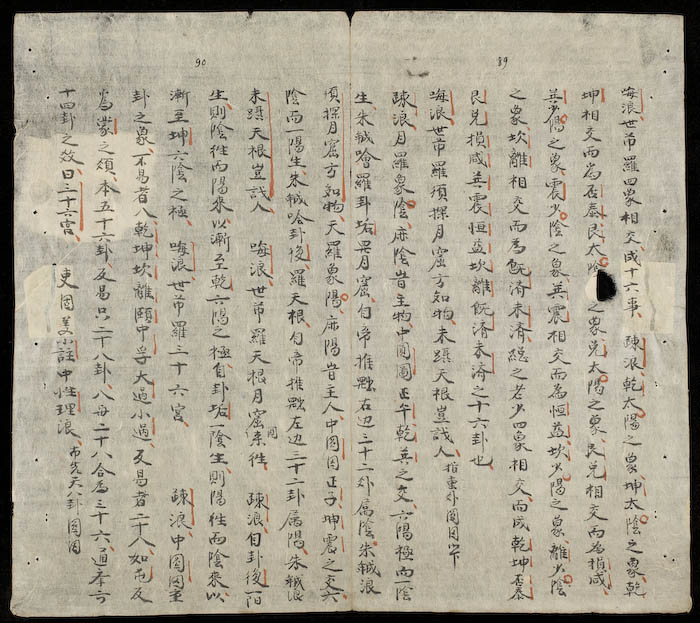 嗨浪世芇羅四象相交成十六事 疎浪乾太陽之象坤太陰之象乾
坤相交而為否泰艮太陰之象兌太陽之象艮兌相交而為損咸
巽少陽之象震少陰之象巽震相交而為恒益坎少陽之象離少陰
之象坎離相交而為既済未済緫之老少四象相交而成乾坤否泰
艮兌損咸巽震恒益坎離既済未済之十六卦也
嗨浪世芇羅須探月窟方知物未躡天根豈識人 指外圖圓
疎浪月羅象陰亦陰皆主物中圖圓正午乾巽之交六陽極而一陰
生朱羅卦垢巽月窟句帝推右边三十二卦属陰朱浪
須探月窟方知物天羅象陽亦陽皆主人中圖圓正子坤震之交六
陰而一陽生朱卦復羅天根句帝推左边三十二卦属陽朱浪
未躡天根豈識人 嗨浪世芇羅天根月窟閑来徃 疎浪自卦復一陽
生則陰徃而陽來以漸至乾六陽之極自卦垢一陰生則陽徃而陰來以
漸至坤六陰之極 嗨浪世芇羅三十六宮 疎浪中圖圓
卦之象不易者八乾坤坎離頤中孚大過小過反易者二十八如反
為蒙之類本五十六卦反易只二十八卦八每二十八合為三十六通奉六
十四卦之故曰三十六宮 吏圖小註中性理浪 先天八卦圖圓
89
90